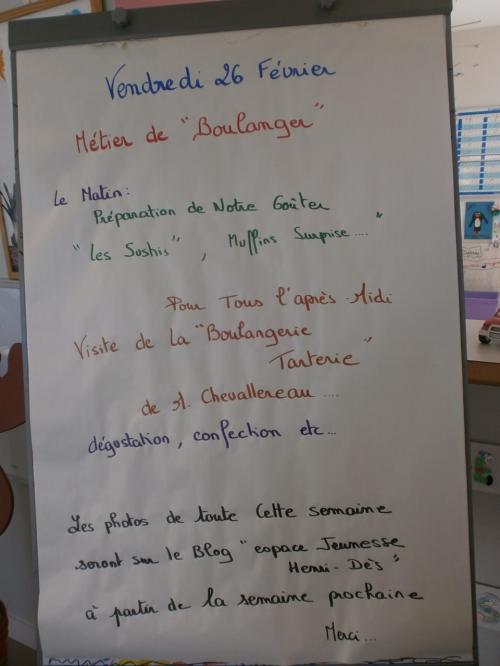 Vendredi 26 Février
Métier de "Boulanger"
Le Matin:
Préparation de Notre Goûter
"Les Sushis", Muffins Surprise...."
Pour Tous l'après-Midi
Visite de La "Boulangerie
Tarterie"
de M. Chevallereau ....
dégustation, confection etc...
Les photos de toute Cette semaine
seront sur le Blog "espace Jeunesse
Henri-Dès"
à partir de la semaine prochaine
Merci...